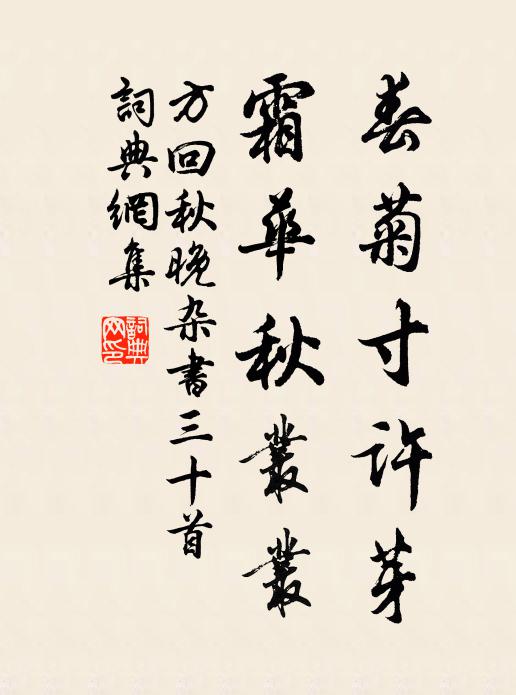 春菊寸许芽
霜華秋叢叢
方回秋晚杂書三十首
詞典網集
詞典网印